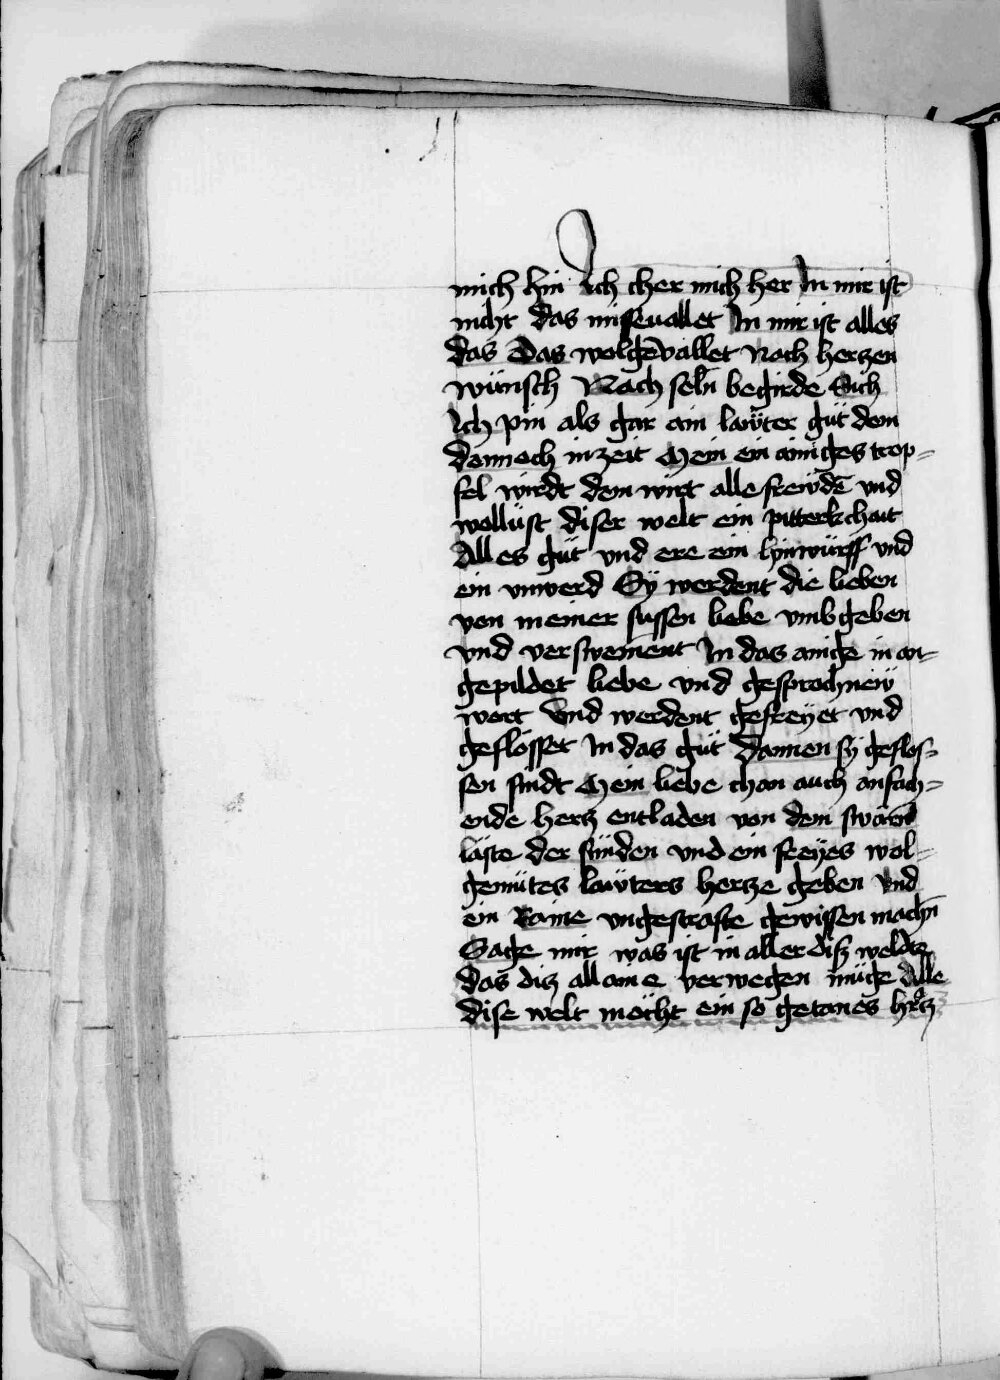 mich hin Ich cher mich her In mir ist
nicht das missevallet In mir ist alles
das Das wolgevallet Nach herzen
wünsch Nach seln begirde Sich
Ich pin als gar ain lawter güt dem
dennoch in zeit Mein ein ainiges trop-
fel wirdt dem wirt alle frewdē vnd
wollüst diser welt ein pitterkchait
Alles güt vnd ere ein hinwürff vnd
ein vnwerd Sy werdent die lieben
von meiner sussen liebe vmbgeben
vnd verswement In das ainige in an-
gepildet liebe vnd gesprochnew
wort Vnd werdent gefreyet vnd
geflösset In das güt Dannen sy geflos-
sen sindt Mein liebe chan auch anfach-
ende hertz entladen von dem swären
läste der sünden vnd ein freyes wol-
gemütes lawters hertze geben Vnd
ein Raine vngestrafte gewissen machn
Sage mir was ist in aller diser weldt
das diz allaine verwegen müge Alle
dise welt möcht ein so getanes hertz